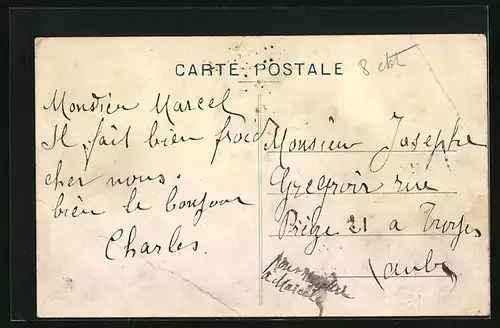 CARTE POSTALE
8 
Monsieu Marcel
Il fait bien froid
cher nous.
bien le bonjour
Charles.
Monsieur Josephe
Gregroir rue
21 a Troyes
(aube)
pour
a Marcel